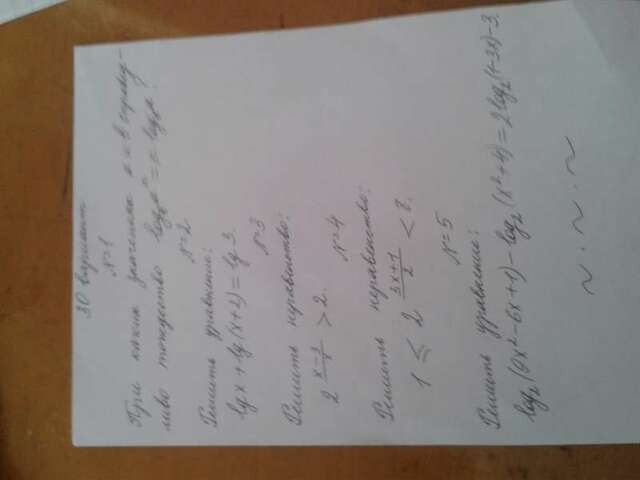 30 вариант
N=1
При каких значениях a и b справед-
ливо тождество log_b a^n = n log_b a?
N=2
Решить уравнение:
lg x + lg (x+2) = lg 3.
N=3
Решить неравенство:
2^{\frac{x-3}{x}} > 2.
N=4
Решить неравенство:
1 ≤ 2^{\frac{3x+1}{2}} < 8.
N=5
Решить уравнение:
log_2 (9x^2-6x+1) - log_2 (x^2+4) = 2 log_2 (1-3x) - 3.